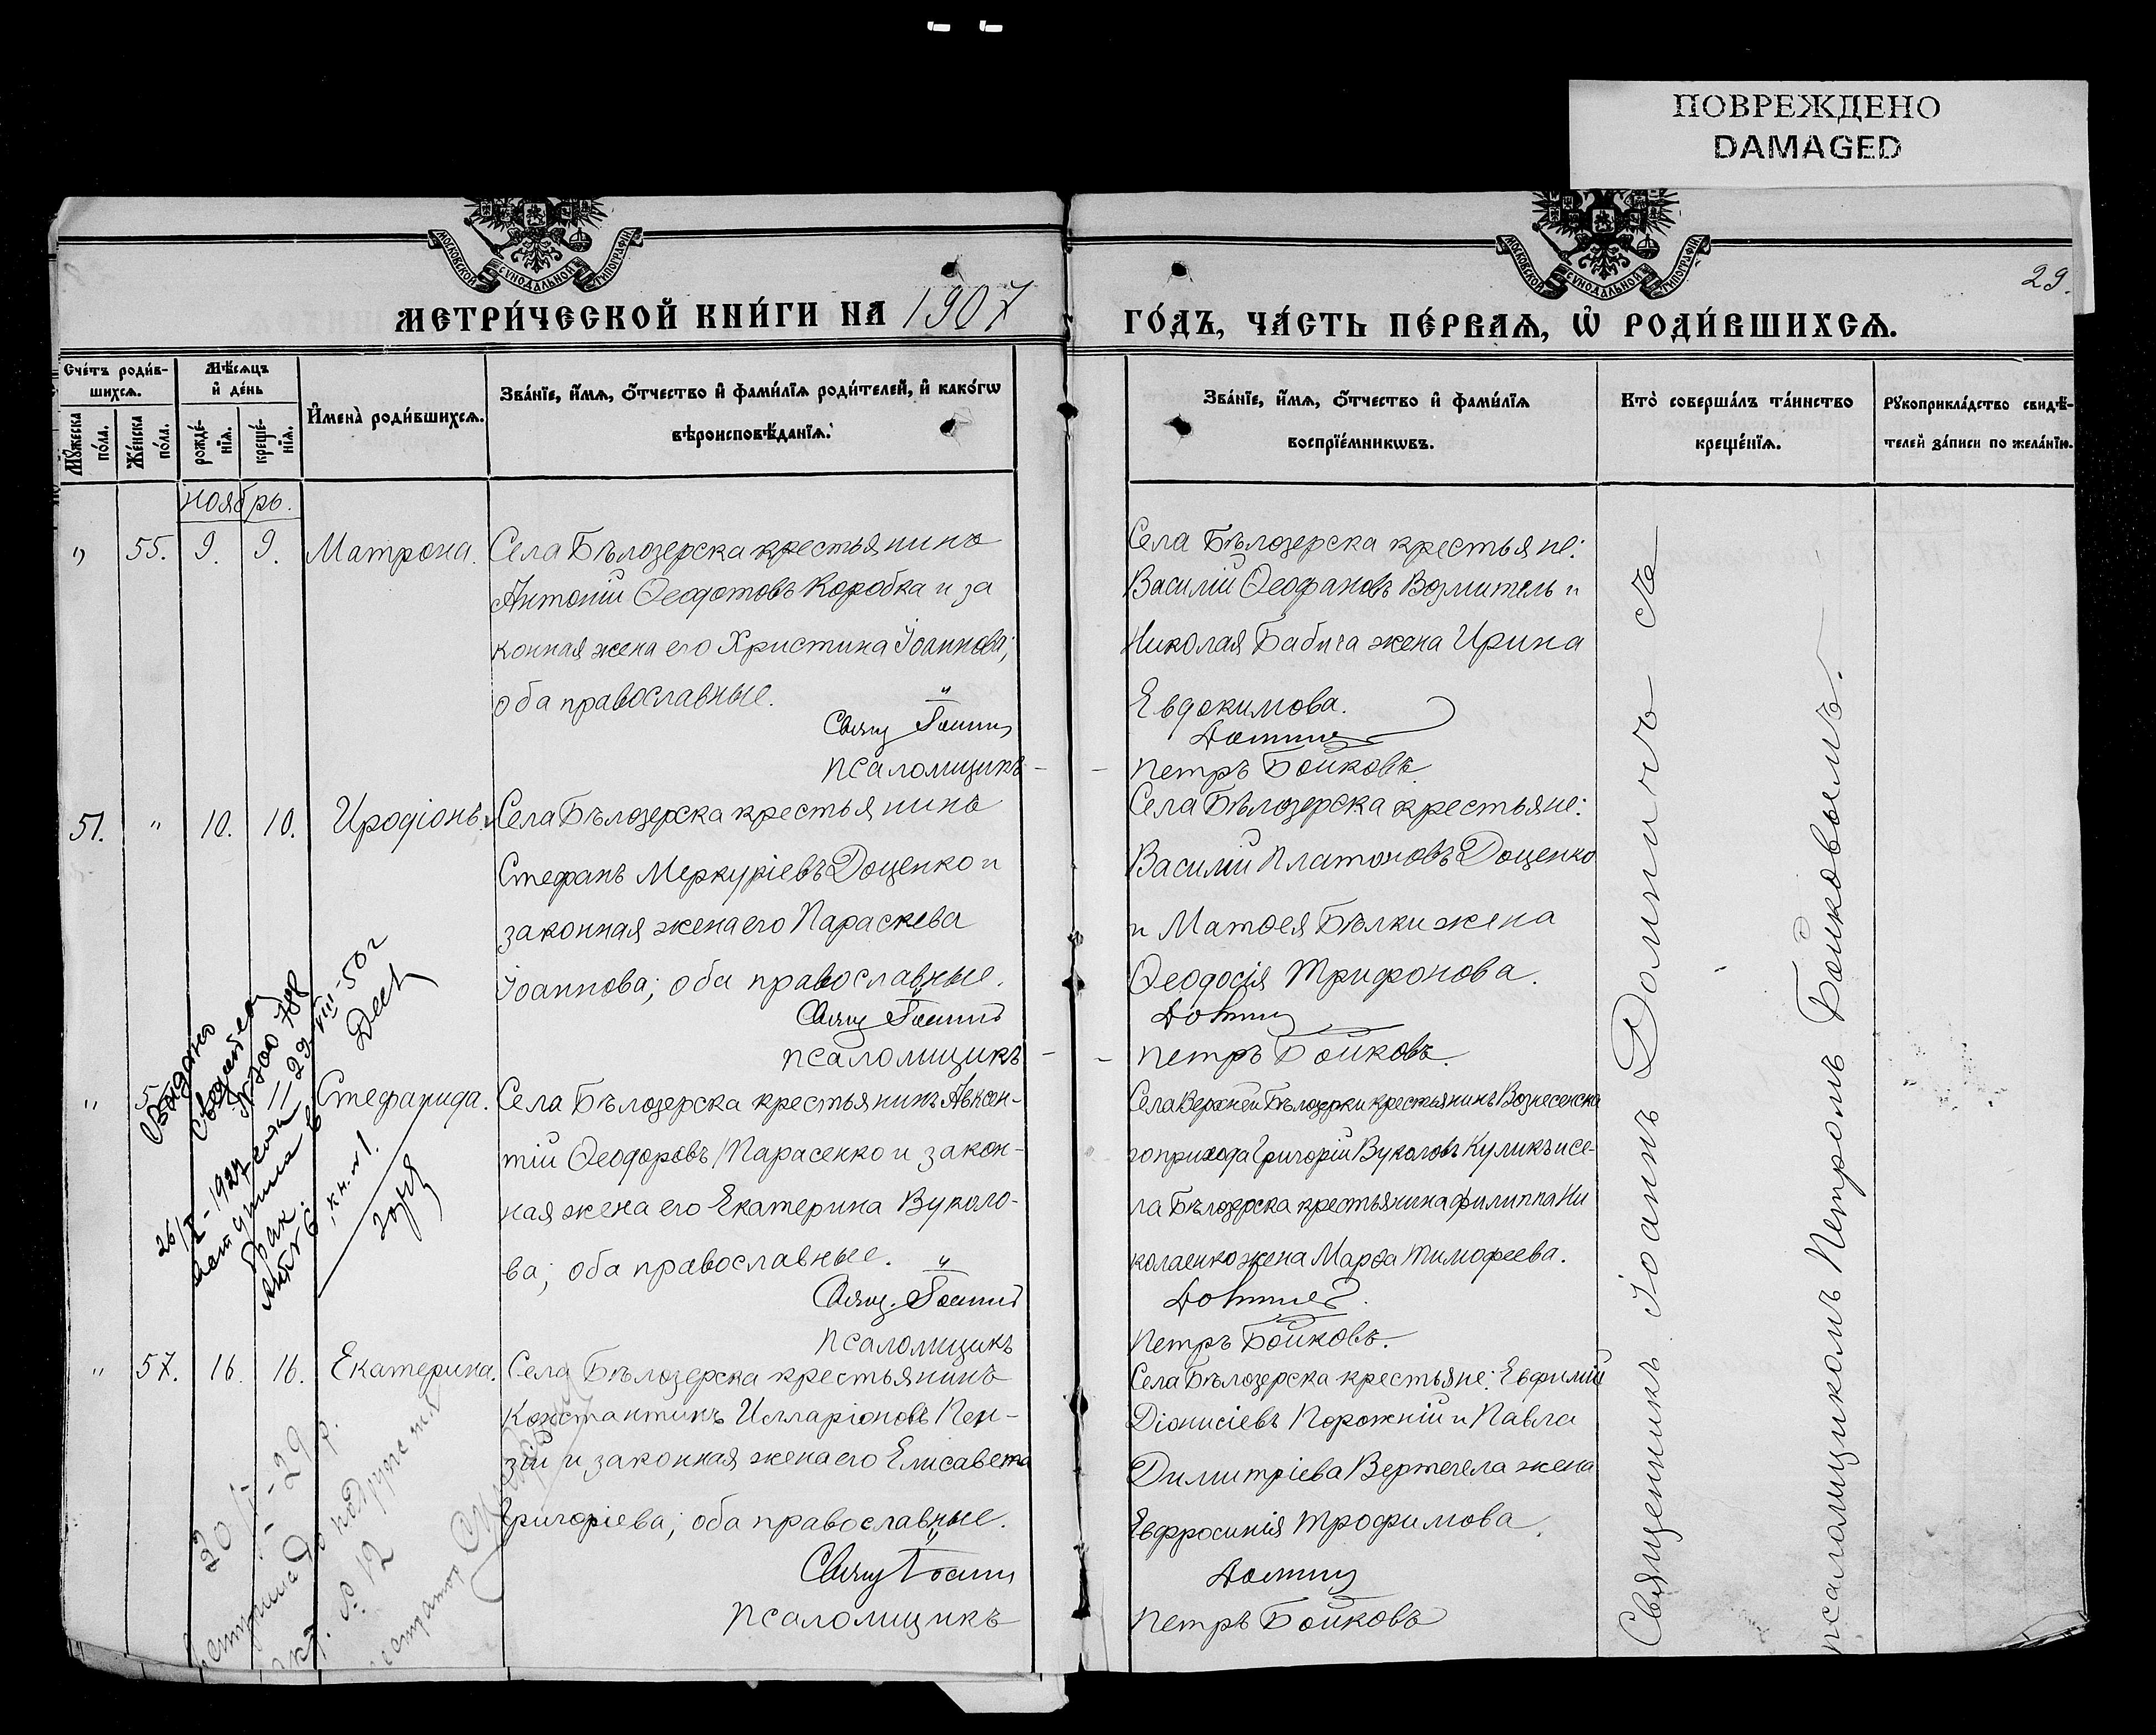 ПОВРЕЖДЕНО
DAMAGED
МОСКОВСКОЙ СѴНОДАЛЬНОЙ ТИПОГРАФІИ
МОСКОВСКОЙ СѴНОДАЛЬНОЙ ТИПОГРАФІИ
29.
МЕТРИ́ЧЕСКОЙ КНИ́ГИ НА 1907
ГО́ДЪ, ЧА́СТЬ ПЕ́РВАѦ, Ѽ РОДИ́ВШИХСѦ.
Сче́тъ роди́в-
шихсѧ.
Мꙋ́жеска по́ла.
Же́нска по́ла.
Мѣ́сѧцъ
и҆ де́нь
рожде́-
нїѧ.
креще́-
нїѧ.
И҆мена̀ роди́вшихсѧ.
Зва́нїе, и҆́мѧ, ѻ҆́тчество и҆ фами́лїѧ роди́телей, и҆ како́гѡ
вѣроисповѣ́данїѧ.
Зва́нїе, и҆́мѧ, ѻ҆́тчество и҆ фами́лїѧ
воспрїе́мникѡвъ.
Кто̀ соверша́лъ та́инство
креще́нїѧ.
Рꙋкоприкла́дство свидѣ́-
телей за́писи по жела́нїю.
ноябрь.
" 55. 9. 9. Матрона. Села Бѣлозерска крестьянинъ
Антоній Ѳеодотовъ Коробка и за
конная жена его Христина Іоаннова;
оба православные.
Свящ Іоаннъ
псаломщикъ
Села Бѣлозерска крестьяне:
Василій Ѳеофановъ Возмитель и
Николая Бабича жена Ирина
Евдокимова.
Петръ Бойковъ.
51. " 10. 10. Иродіонъ. Села Бѣлозерска крестьянинъ
Стефанъ Меркуріевъ Доценко и
законная жена его Параскева
Іоаннова; оба православные.
Свящ Іоаннъ
псаломщикъ
Села Бѣлозерска крестьяне:
Василій Платоновъ Доценко
и Матѳея Бѣлки жена
Ѳеодосія Трифонова.
Петръ Бойковъ.
" 11 Стефанида. Села Бѣлозерска крестьянинъ Авксен-
тій Ѳеодоровъ Тарасенко и закон-
ная жена его Екатерина Вуколо-
ва; оба православные.
Свящ. Іоаннъ
псаломщикъ
Села Верхней Бѣлозерки крестьянинъ Вознесенска
го прихода Григорій Вуколовъ Куликъ и се-
ла Бѣлозерска крестьянина Филиппа Ни
колаенко жена Марѳа Тимофеева.
Петръ Бойковъ.
Выдано
свидетел
№ 788
29-VIII-50 г
26/X-1927
брак
акт № 6, кн. № 1.
" 57. 16. 16. Екатерина. Села Бѣлозерска крестьянинъ
Константинъ Илларіоновъ Пен-
зій и законная жена его Елисавета
Григоріева; оба православные.
Свящ Іоаннъ
псаломщикъ
Села Бѣлозерска крестьяне: Евфимій
Діонисіевъ Порожній и Павла
Димитріева Вертегела жена
Евфросинія Трофимова.
Петръ Бойковъ
№ 12
Священникъ Іоаннъ Долничъ съ
псаломщикомъ Петромъ Бойковымъ.